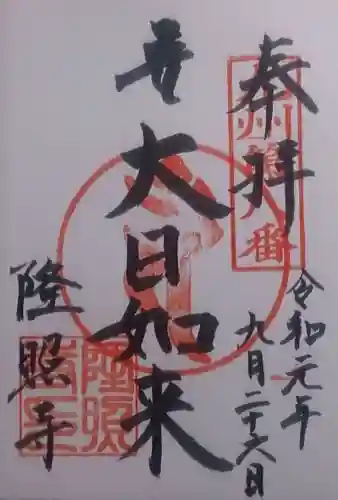 奉拝
令和元年
九月二十六日
大日如来
隆照寺
隆照